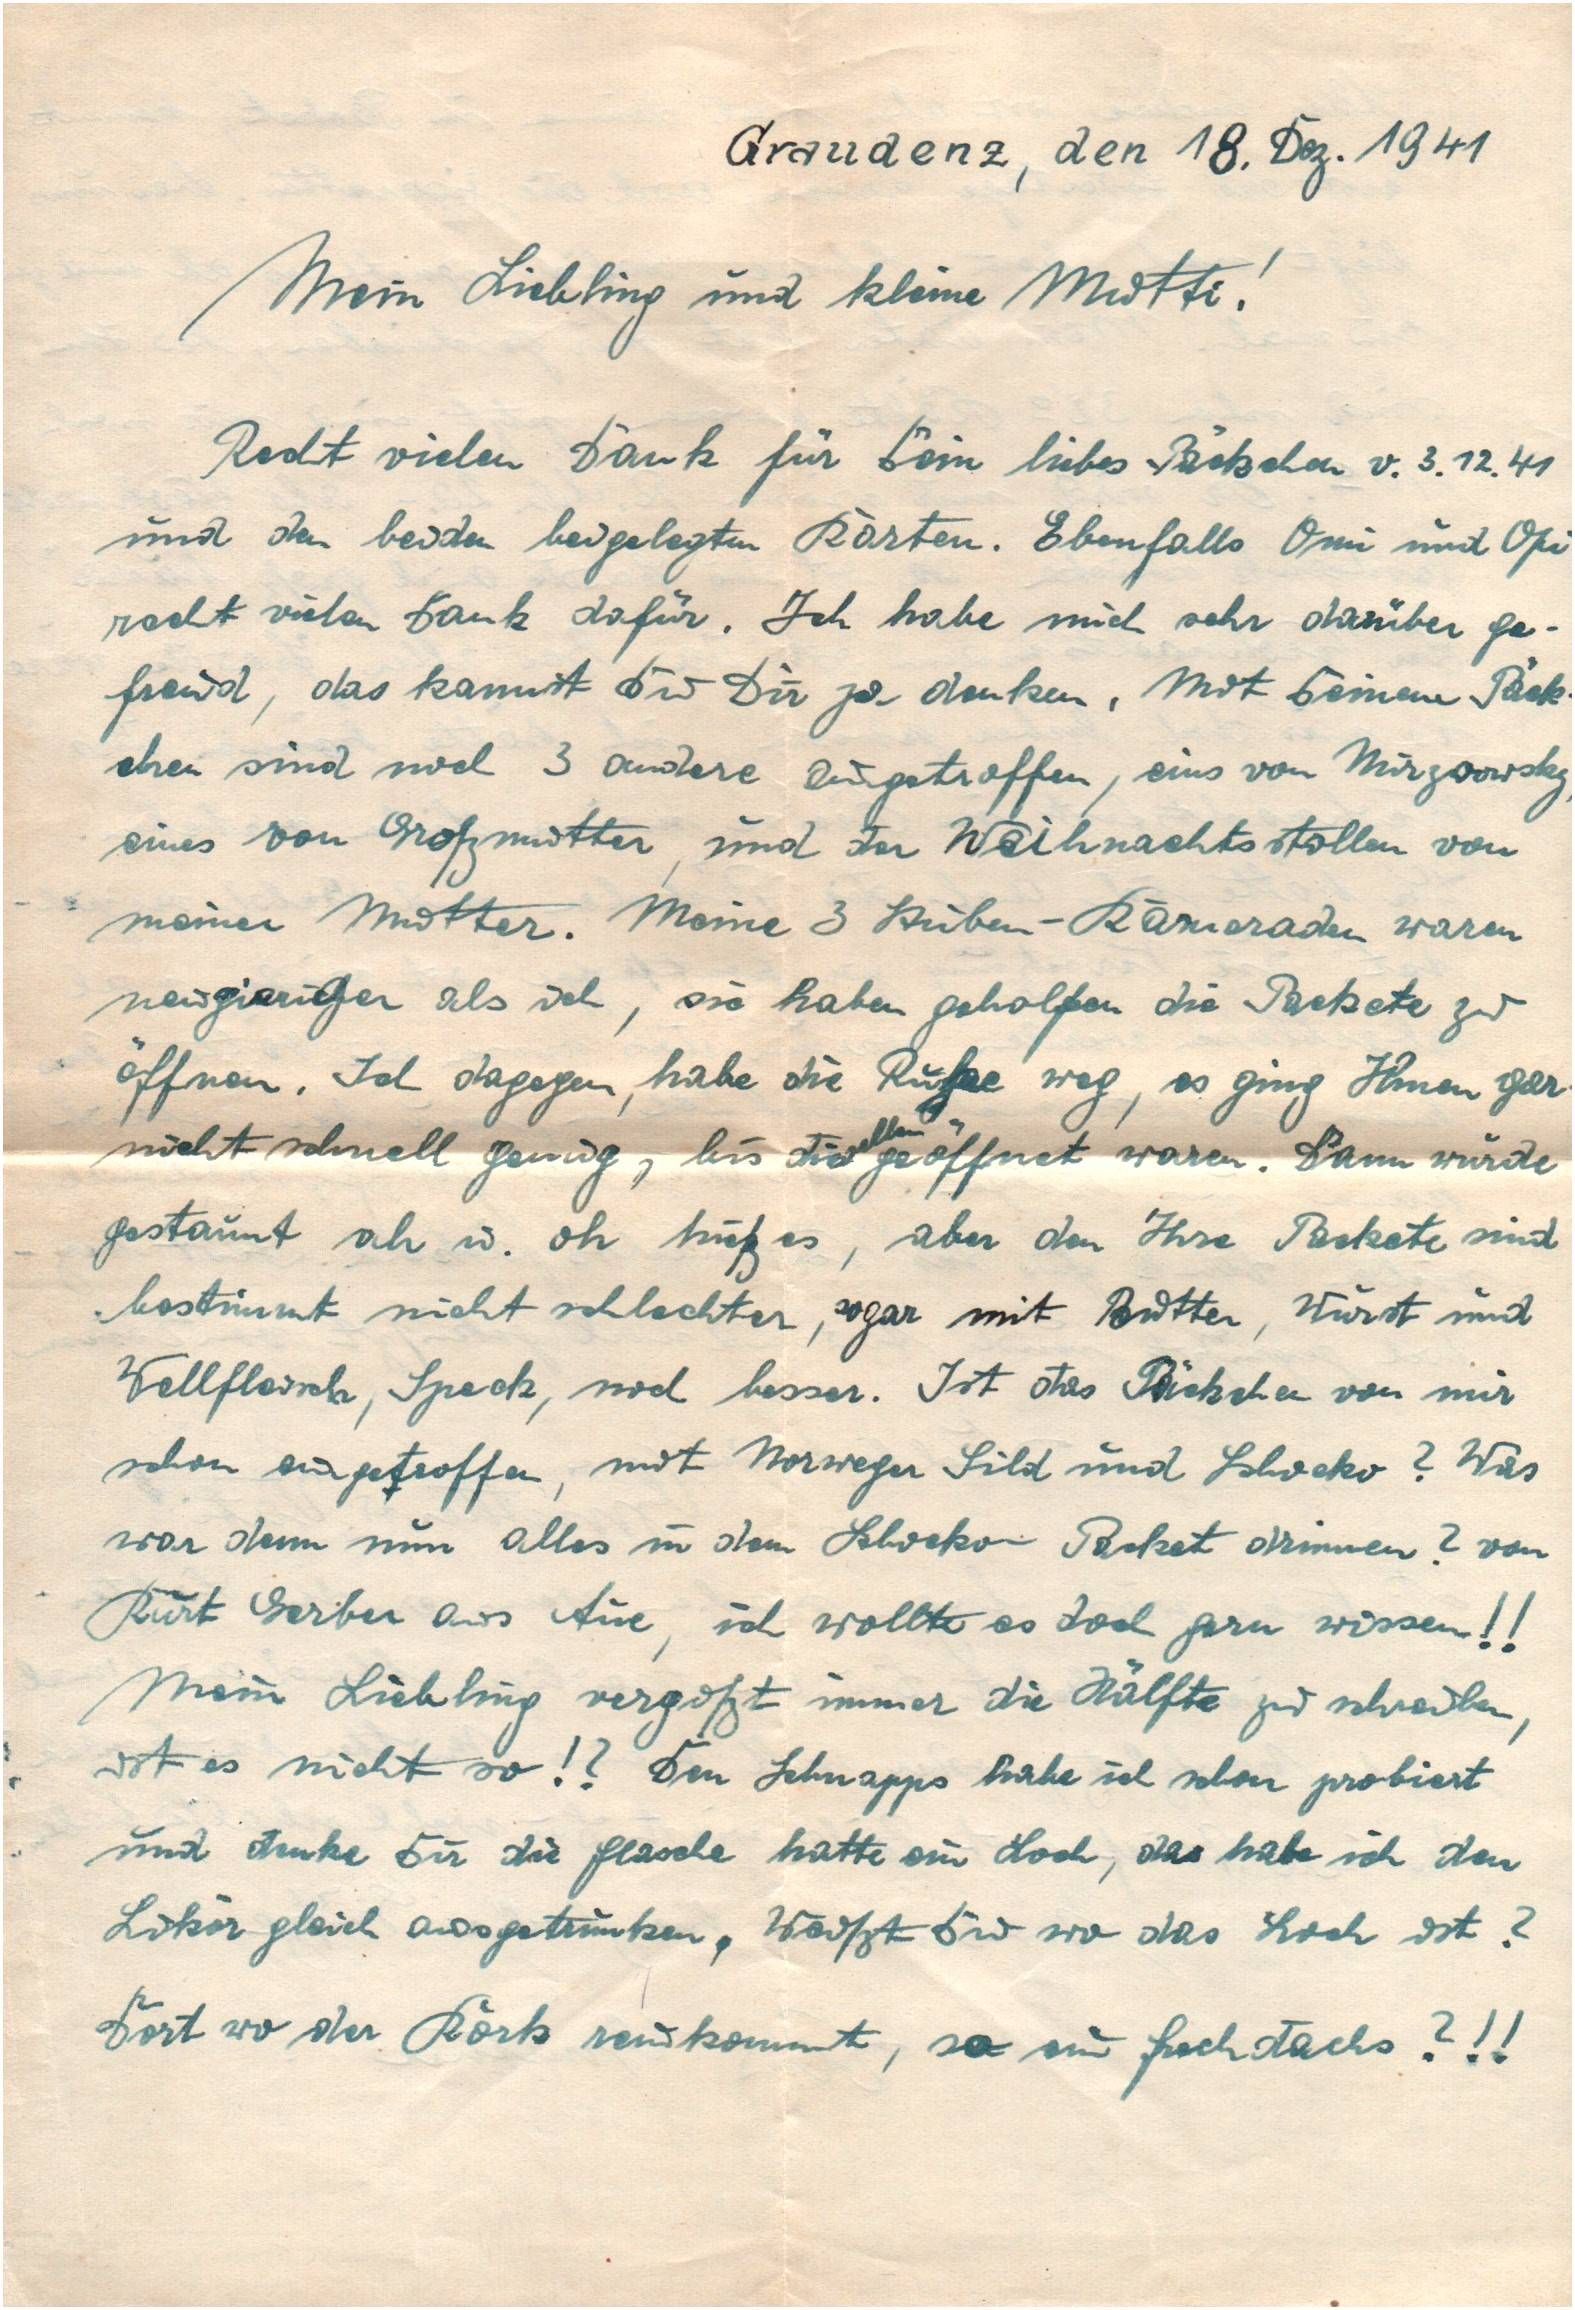 Graudenz, den 18. Dez. 1941
Mein Liebling und kleine Mutti!
Recht vielen Dank für Dein liebes Päckchen v. 3.12.41
und den beiden beigelegten Karten. Ebenfalls Omi und Opi
recht vielen Dank dafür. Ich habe mich sehr darüber ge-
freud, das kannst Du Dir ja denken. Mit Deinem Päck-
chen sind noch 3 andere eingetroffen, eins von
eines von Großmutter, und der Weihnachtsstollen von
meiner Mutter. Meine 3 Stuben-Kameraden waren
neugieriger als ich, sie haben geholfen die Packete zu
öffnen. Ich dagegen, habe die Ruhe weg, es ging Ihnen gar-
nicht schnell genug, bis dieselben geöffnet waren. Dann wurde
gestaunt ah u. oh hieß es, aber den Ihre Packete sind
bestimmt nicht schlechter, sogar mit Butter, Wurst und
Wellfleisch, Speck, noch besser. Ist das Päckchen von mir
schon eingetroffen, mit Norweger Sild und Schocko? Was
war denn nun alles in dem Schocko- Packet drinnen? von
Kurt Gerber aus Aue, ich wollte es doch gern wissen!!
Mein Liebling vergißt immer die Hälfte zu schreiben,
ist es nicht so!? Den Schnapps habe ich schon probiert
und denke Dir die Flasche hatte ein Loch, da habe ich den
Likör gleich ausgetrunken. Weißt Du wo das Loch ist?
Dort wo der Kork reinkommt, so ein Frechdachs?!!